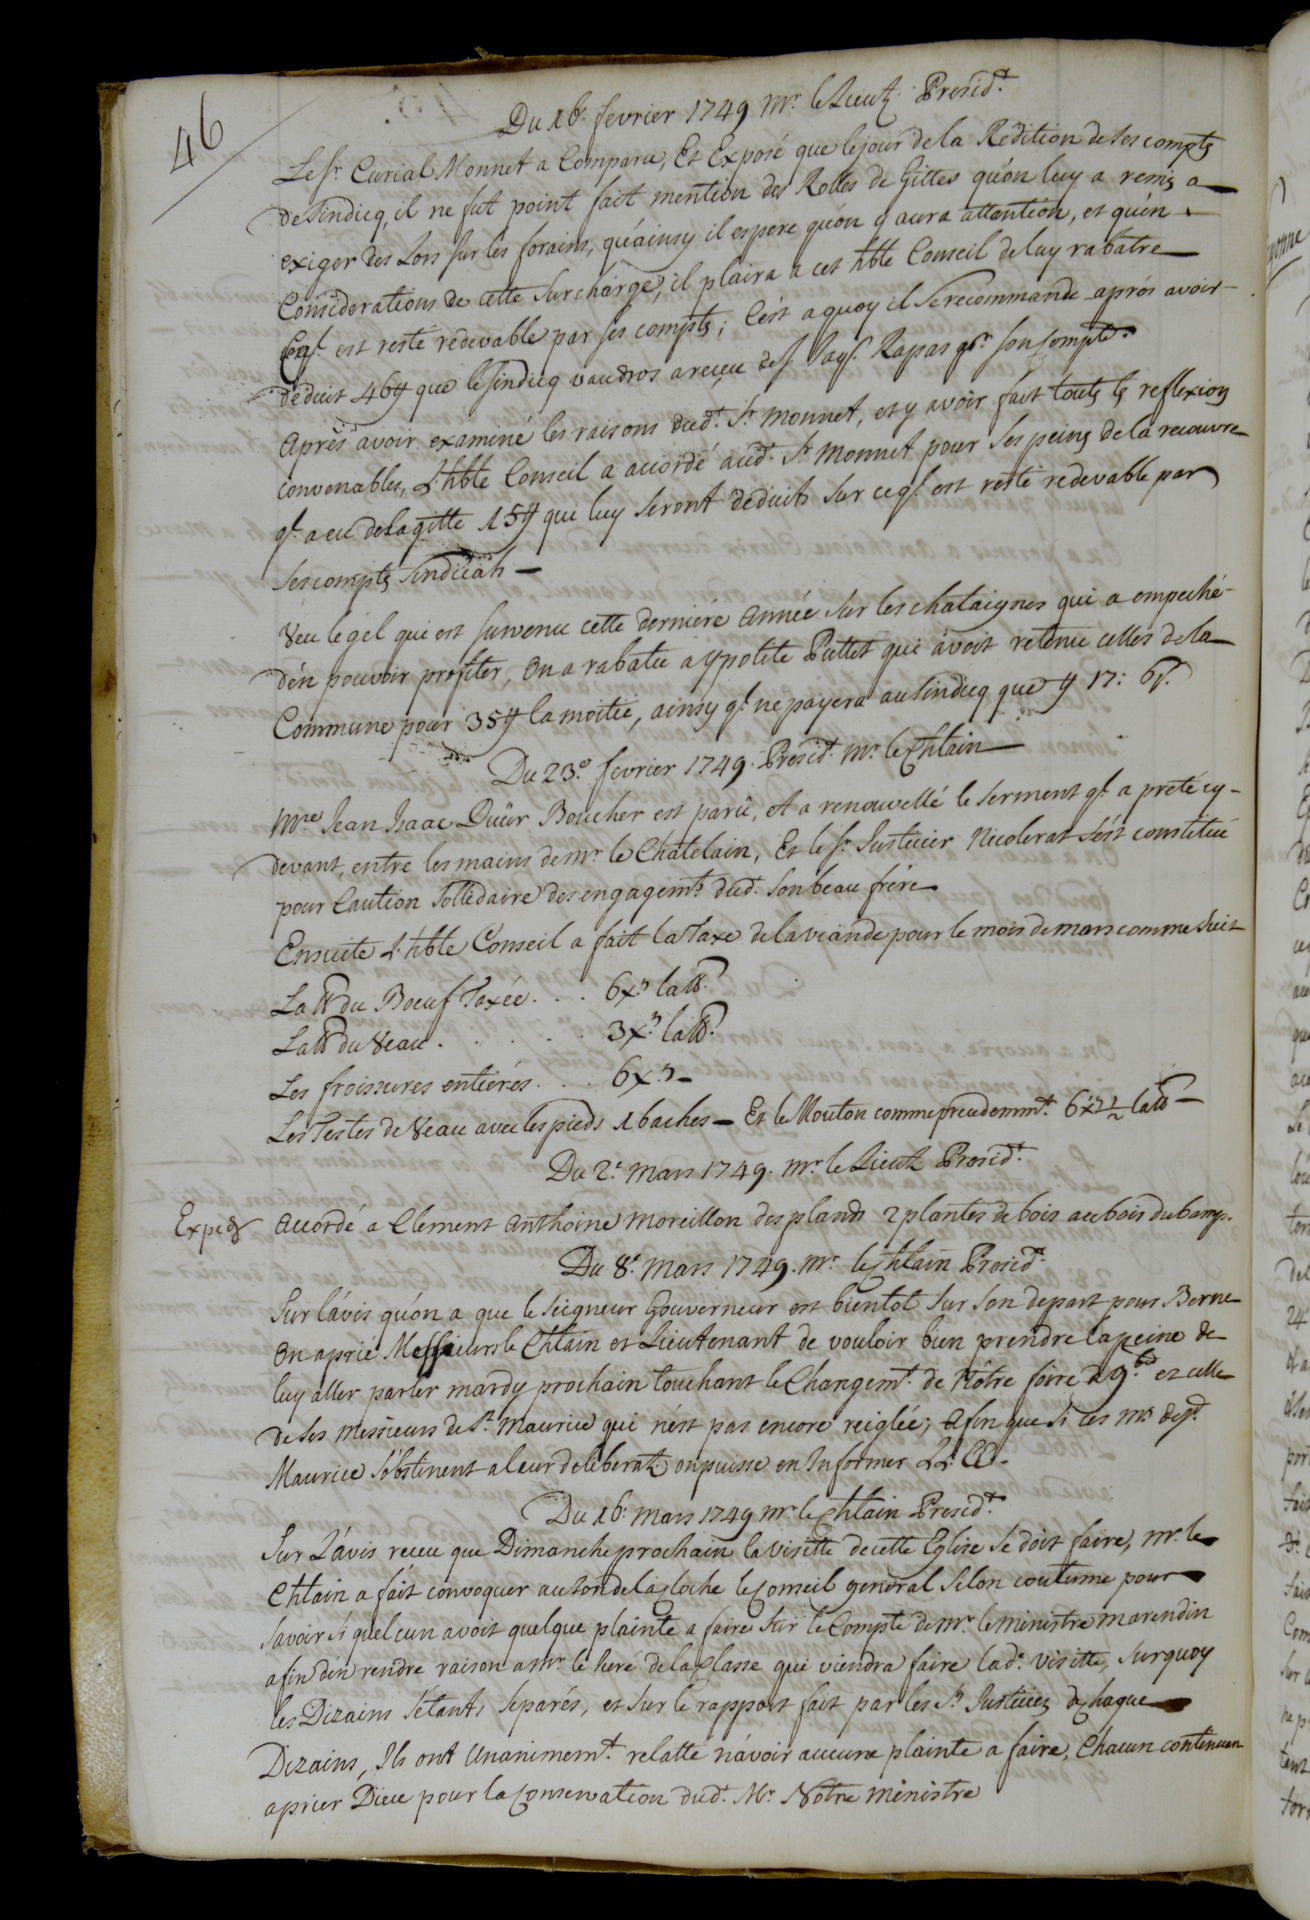 46
Du 16. fevrier 1749 Mr. le Lieut. Presid.t
Le Sr. Curial Monnet a Comparu, Et Exposé que le jour de la Redition de ses compts
de sindicq, il ne fut point fait mention des Rolles de Gittes qu'on luy a remis a
exiger des Lors sur les forains, qu'ainsy il espere qu'on y aura attention, et qu'en
Considerations de cette surcharge, il plaira a cet hble Conseil de luy rabatre
est resté redevable par ses compts; C'est a quoy il se recommande après avoir
déduit 46 que le sindicq vaudros a reçeu Rapas son compte.
Après avoir examiné les raisons dud.t Sr. Monnet, et y avoir fait touts ls reflexions
convenables, L'hble Conseil a accordé aud.t Sr. Monnet pour ses peines de la recouvre
ql. a eu de la gitte 15 qui luy seront deduits sur ce ql. est resté redevable par
ses compts sindicals
Veu le gel qui est survenu cette derniere Année sur les chataignes qui a empeché
d'en pouvoir profiter, On a rabatu a Ypolite Puttet qui avoit retenu celles de la
Commune pour 35 la moitié, ainsy ql. ne payera au sindicq que 17: 6.
Du 23.e fevrier 1749. Presid.t Mr. le Chlain
Mre Jean Isaac Düür Boucher est parû, et a renouvellé le serment ql. a preté cy-
devant, entre les mains de Mr. le Châtelain, Et le Sr. Justicier Nicolerat s'est constitué
pour Caution sollidaire des engagemts. dud.t son beau frère
Ensuite L'hble Conseil a fait la Taxe de la viande pour le mois de mars comme suit
La lb du Boeuf Taxée . . . 6 xr. la lb.
La lb du Veau . . . . . . 3 xr. la lb.
Les froissures entiéres . . . 6 xr.
Les Testes de Veau avec les pieds 1 baches - Et le Mouton comme precedemmt. 6 xr ½ la lb
Du 2.e Mars 1749. Mr. le Lieut. Presid.t
Exped. Accordé a Clement Anthoine Moreillon des plands 2 plantes de bois au bois du bamp.
Du 8.e Mars 1749. Mr. le Chlain Presid.t
Sur l'avis qu'on a que le Seigneur Gouverneur est bientot sur son depart pour Berne
on a prié Messieurs le Chlain et Lieutenant de vouloir bien prendre la peine de
luy aller parler mardy prochain touchant le Changemt. de Nôtre foire d 9bre et celle
de ses Messieurs de St. Maurice qui n'est pas encore reiglée; Afin que si ces Mrs de St.
Maurice s'obstinent a leur deliberat. on puisse en Informer LL. EE.
Du 16. Mars 1749 Mr. le Chlain Presid.t
Sur L'avis receu que Dimanche prochain la visitte de cette Eglise se doit faire, Mr. le
Chlain a fait convoquer au son de la cloche le Conseil general selon coutume pour
savoir si quelcun avoit quelque plainte a faire sur le Compte de Mr. le ministre marendin
afin d'en rendre raison a Mr. le heré de la Classe qui viendra faire lad.e visitte, surquoy
les Dizains s'étants separés, et sur le rapport fait par les Srs. Justiciers de chaque
Dizains, Ils ont Unanimemt. relatté n'avoir aucune plainte a faire, Chacun continuan
a prier Dieu pour la Conservation dud.t Mr. Notre Ministre